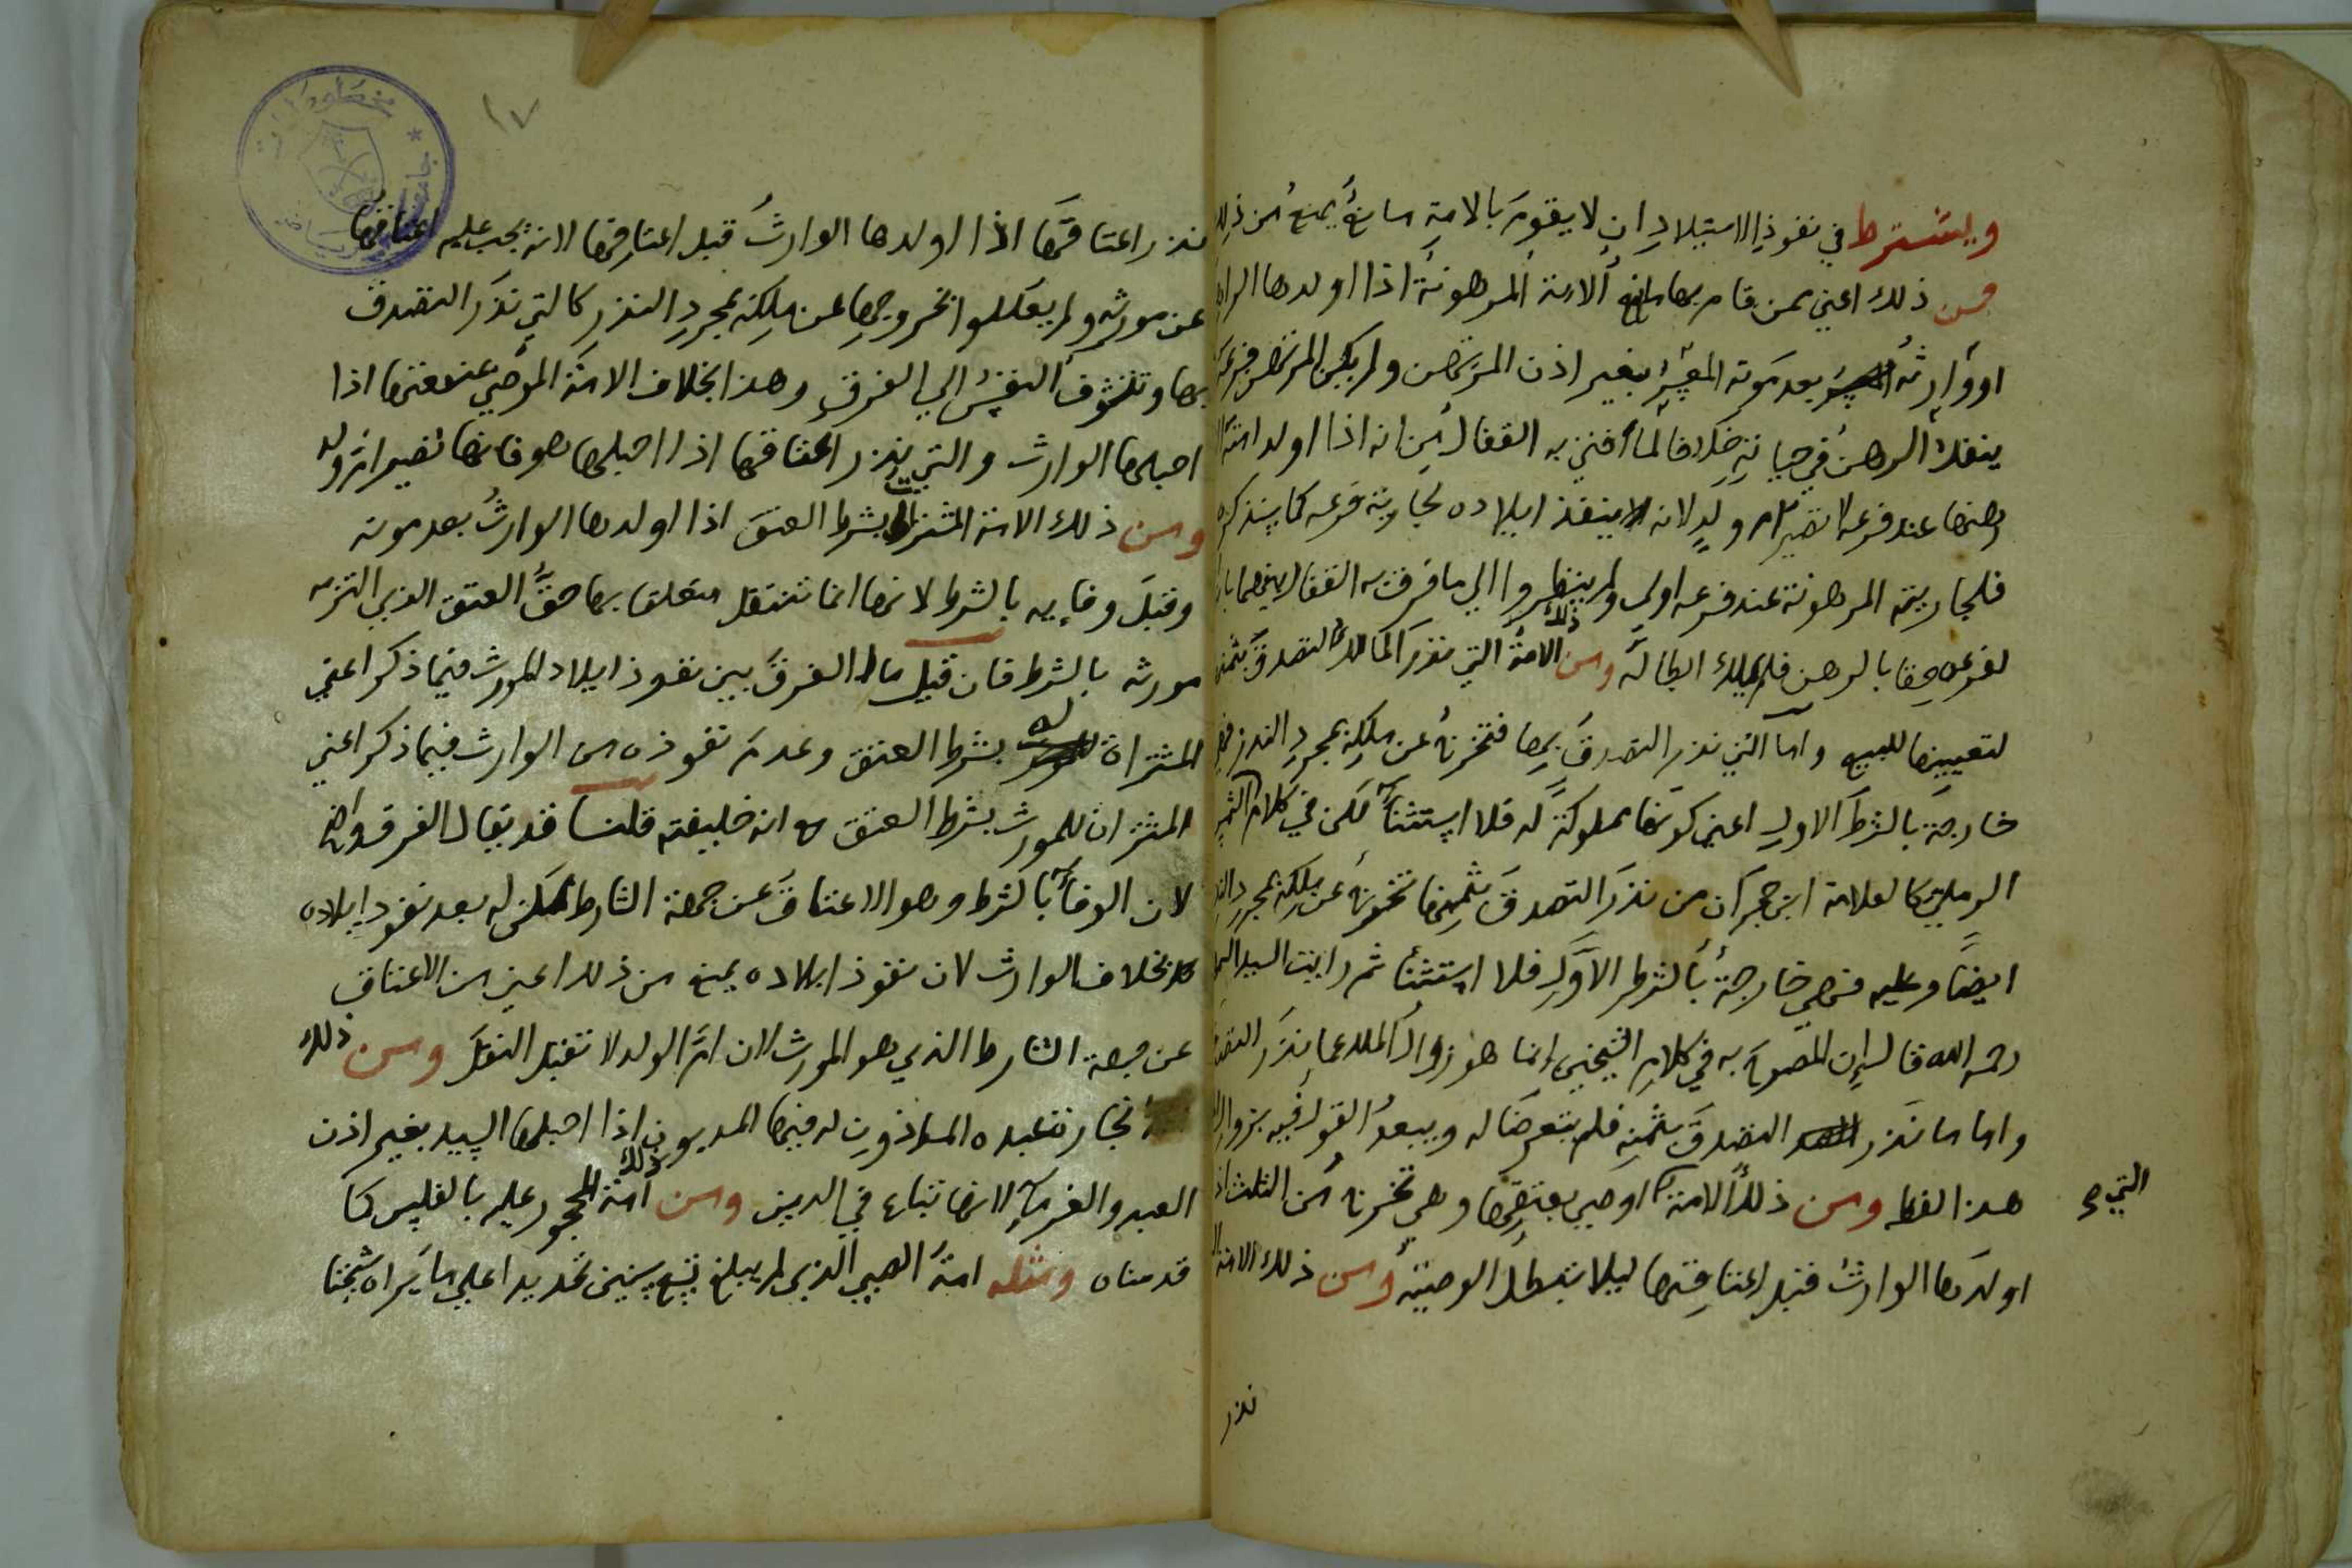 ويشترط في نفوذ الاستيلاد ان لا يقوم بالامة مانع يمنع من ذلك
فمن ذلك اعني ممن قام بها مانع الامة المرهونة اذا اولدها الراهن
او وارثه بعد موته المعسر بغير اذن المرتهن ولم يكن المرتهن فرعه
ينفك الرهن في حياته خلافا لما افتي به القفال من انه اذا اولد امته
رهنها عند فرعه لا تصير ام ولد لانه ينفذ ايلاده لجارية فرعه كما سنذكره
فلجاريته المرهونة عند فرعه اولي ولم ينظروا الي ما فرق به القفال بينهما بان
لفرعه حقا بالرهن فلم يملك ابطاله ومن ذلك الامة التي نذر المالك التصدق بثمنها
لتعيينها للبيع واما التي نذر التصدق بها فتخرج عن ملكه بمجرد النذر فهي
خارجة بالشرط الاول اعني كونها مملوكة له فلا استثناء لكن في كلام الشمس
الرملي كالعلامة ابن حجر ان من نذر التصدق بثمنها تخرج عن ملكه بمجرد النذر
ايضا وعليه فهي خارجة بالشرط الاول فلا استثناء ثم رايت السيد
رحمه الله قال ان المصرح به في كلام الشيخين انما هو زوال الملك عما نذر التصدق
واما ما نذر التصدق بثمنه فلم يتعرضا له ويبعد القول فيه بزوال
هذا لفظه ومن ذلك الامة اوصي بعتقها وهي تخرج من الثلث اذا
التي صح
اولدها الوارث قبل اعتاقها ليلا تبطل الوصية ومن ذلك الامة
نذر
١٧
نذر اعتاقها اذا اولدها الوارث قبل اعتاقها لانه يجب عليه اعتاقها
عن مورثه ولم يعللوا بخروجها عن ملكه بمجرد النذر كالتي نذر التصدق
بها وتتشوف النفس الي الفرق وهذا بخلاف الامة الموصي بعتقها اذا
احبلها الوارث والتي نذر اعتاقها اذا احبلها هو فانها تصير ام ولد
ومن ذلك الامة المشتراة بشرط العتق اذا اولدها الوارث بعد موته
وقبل وفايه بالشرط لانها انما تنتقل متعلقا بها حق العتق الذي التزمه
مورثه بالشرط فان قيل ما الفرق بين نفوذ ايلاد المورث فيما ذكر اعني
المشتراة له بشرط العتق وعدم نفوذه من الوارث فيما ذكر اعني
المشتراة للمورث بشرط العتق مع انه خليفته قلنا قد يقال الفرق واضح
لان الوفاء بالشرط وهو الاعتاق عن جهة الشارط ممكن له بعد نفوذ ايلاده
بخلاف الوارث لان نفوذ ايلاده يمنع من ذلك اعني من الاعتاق
عن جهة الشارط الذي هو المورث لان ام الولد لا تقبل النقل ومن ذلك
تجارة عبده الماذون له فيها المديون اذا احبلها السيد بغير اذن
العبد والغرماء لانها تباع في الدين ومن ذلك امة المحجور عليه بالفليس كما
قدمناه ومثله امة الصبي الذي لم يبلغ تسع سنين تحديدا علي ما يراه شيخنا